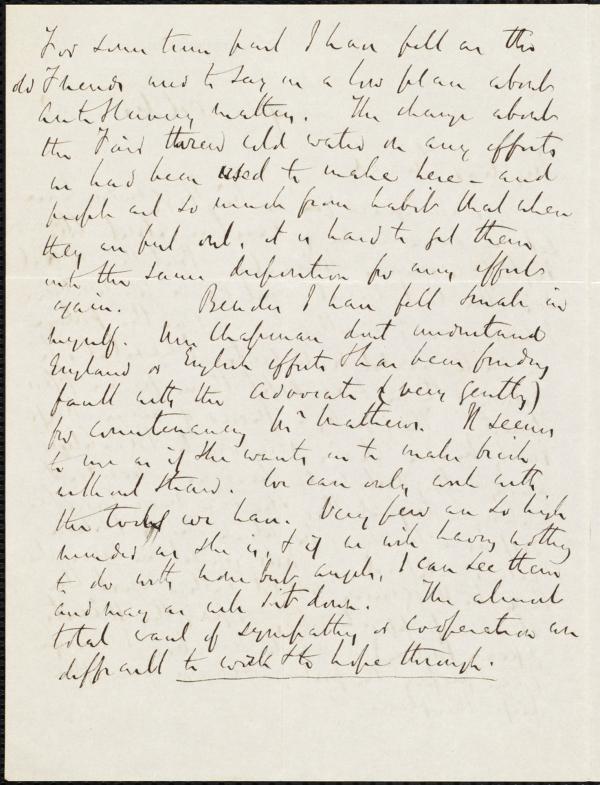 For some time past I have felt as the
old Friends used to say in a low place about
Anti Slavery matters. The change about
the Fair threw cold water on any efforts
we had been used to make here - and
people act so much from habit that when
they are put out, it is hard to get them
into the same disposition for any efforts
again. Besides I have felt small in
myself. Mrs Chapman dont understand
England or English efforts & has been finding
fault with the Advocate (very gently)
for countenancing Mr Mathews. It seems
to me as if she wants us to make brick
without straw. We can only work with
the tools we have. Very few are so high
minded as she is, & if we wish having nothing
to do with none but angels, I can see them
and may as well sit down. The almost
total want of sympathy or cooperation are
difficult to work & to hope through.